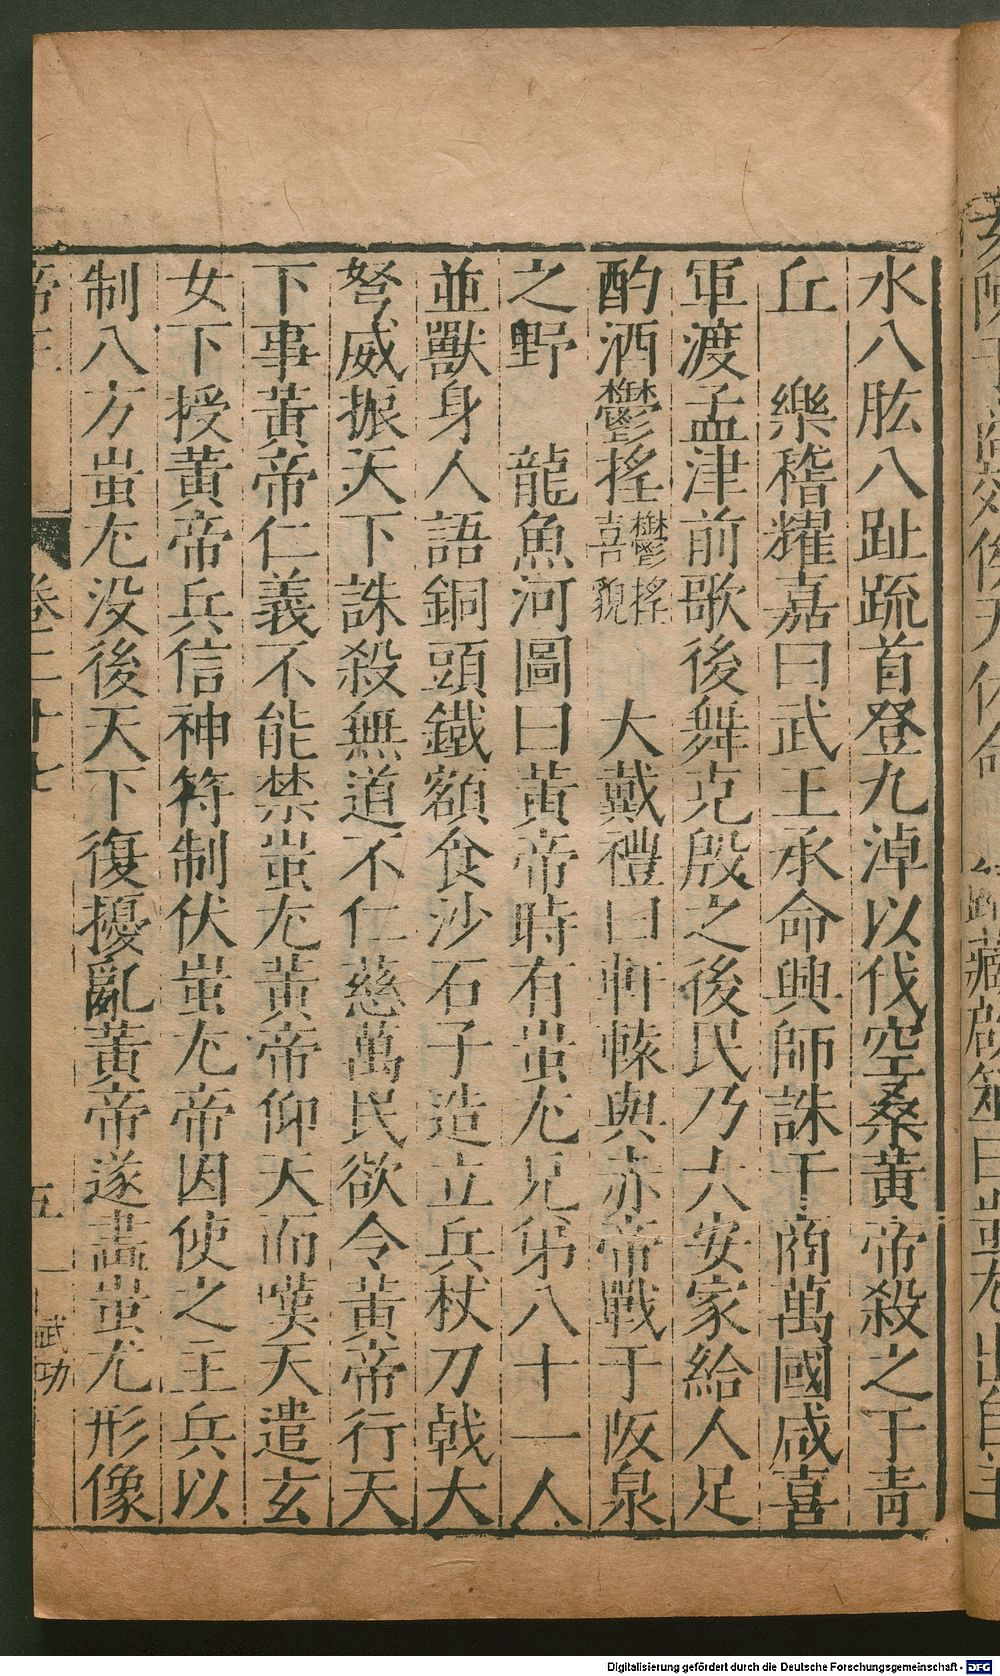 水八肱八趾䟽首登九淖以伐空桑黃帝殺之于青
丘　樂稽耀嘉曰武王承命興師誅于商萬國咸喜
軍渡孟津前歌後舞克殷之後民乃大安家給人足
酌酒欝搖欝搖喜貌　大戴禮曰軒轅與赤帝戰于阪泉
之野　龍魚河圖曰黃帝時有蚩尤兄弟八十一人
並獸身人語銅頭鐵額食沙石子造立兵杖刀戟大
弩威振天下誅殺無道不仁慈萬民欲令黃帝行天
下事黃帝仁義不能禁蚩尤黃帝仰天而嘆天遣玄
女下授黃帝兵信神符制伏蚩尤帝因使之主兵以
制八方蚩尤没後天下復擾亂黃帝遂畫蚩尤形像
卷二十七
五
武功
Digitalisierung gefördert durch die Deutsche Forschungsgemeinschaft - DFG